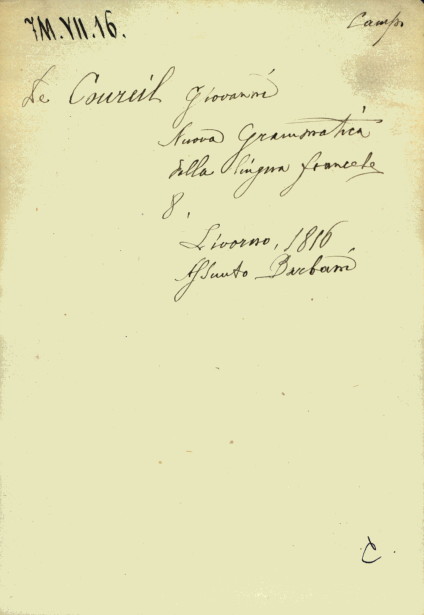 7M.VII.16.
Camp.
De Coureil Giovanni
Nuova Grammatica
della lingua francese
8.
Livorno, 1816
Assunto Barbani
C.